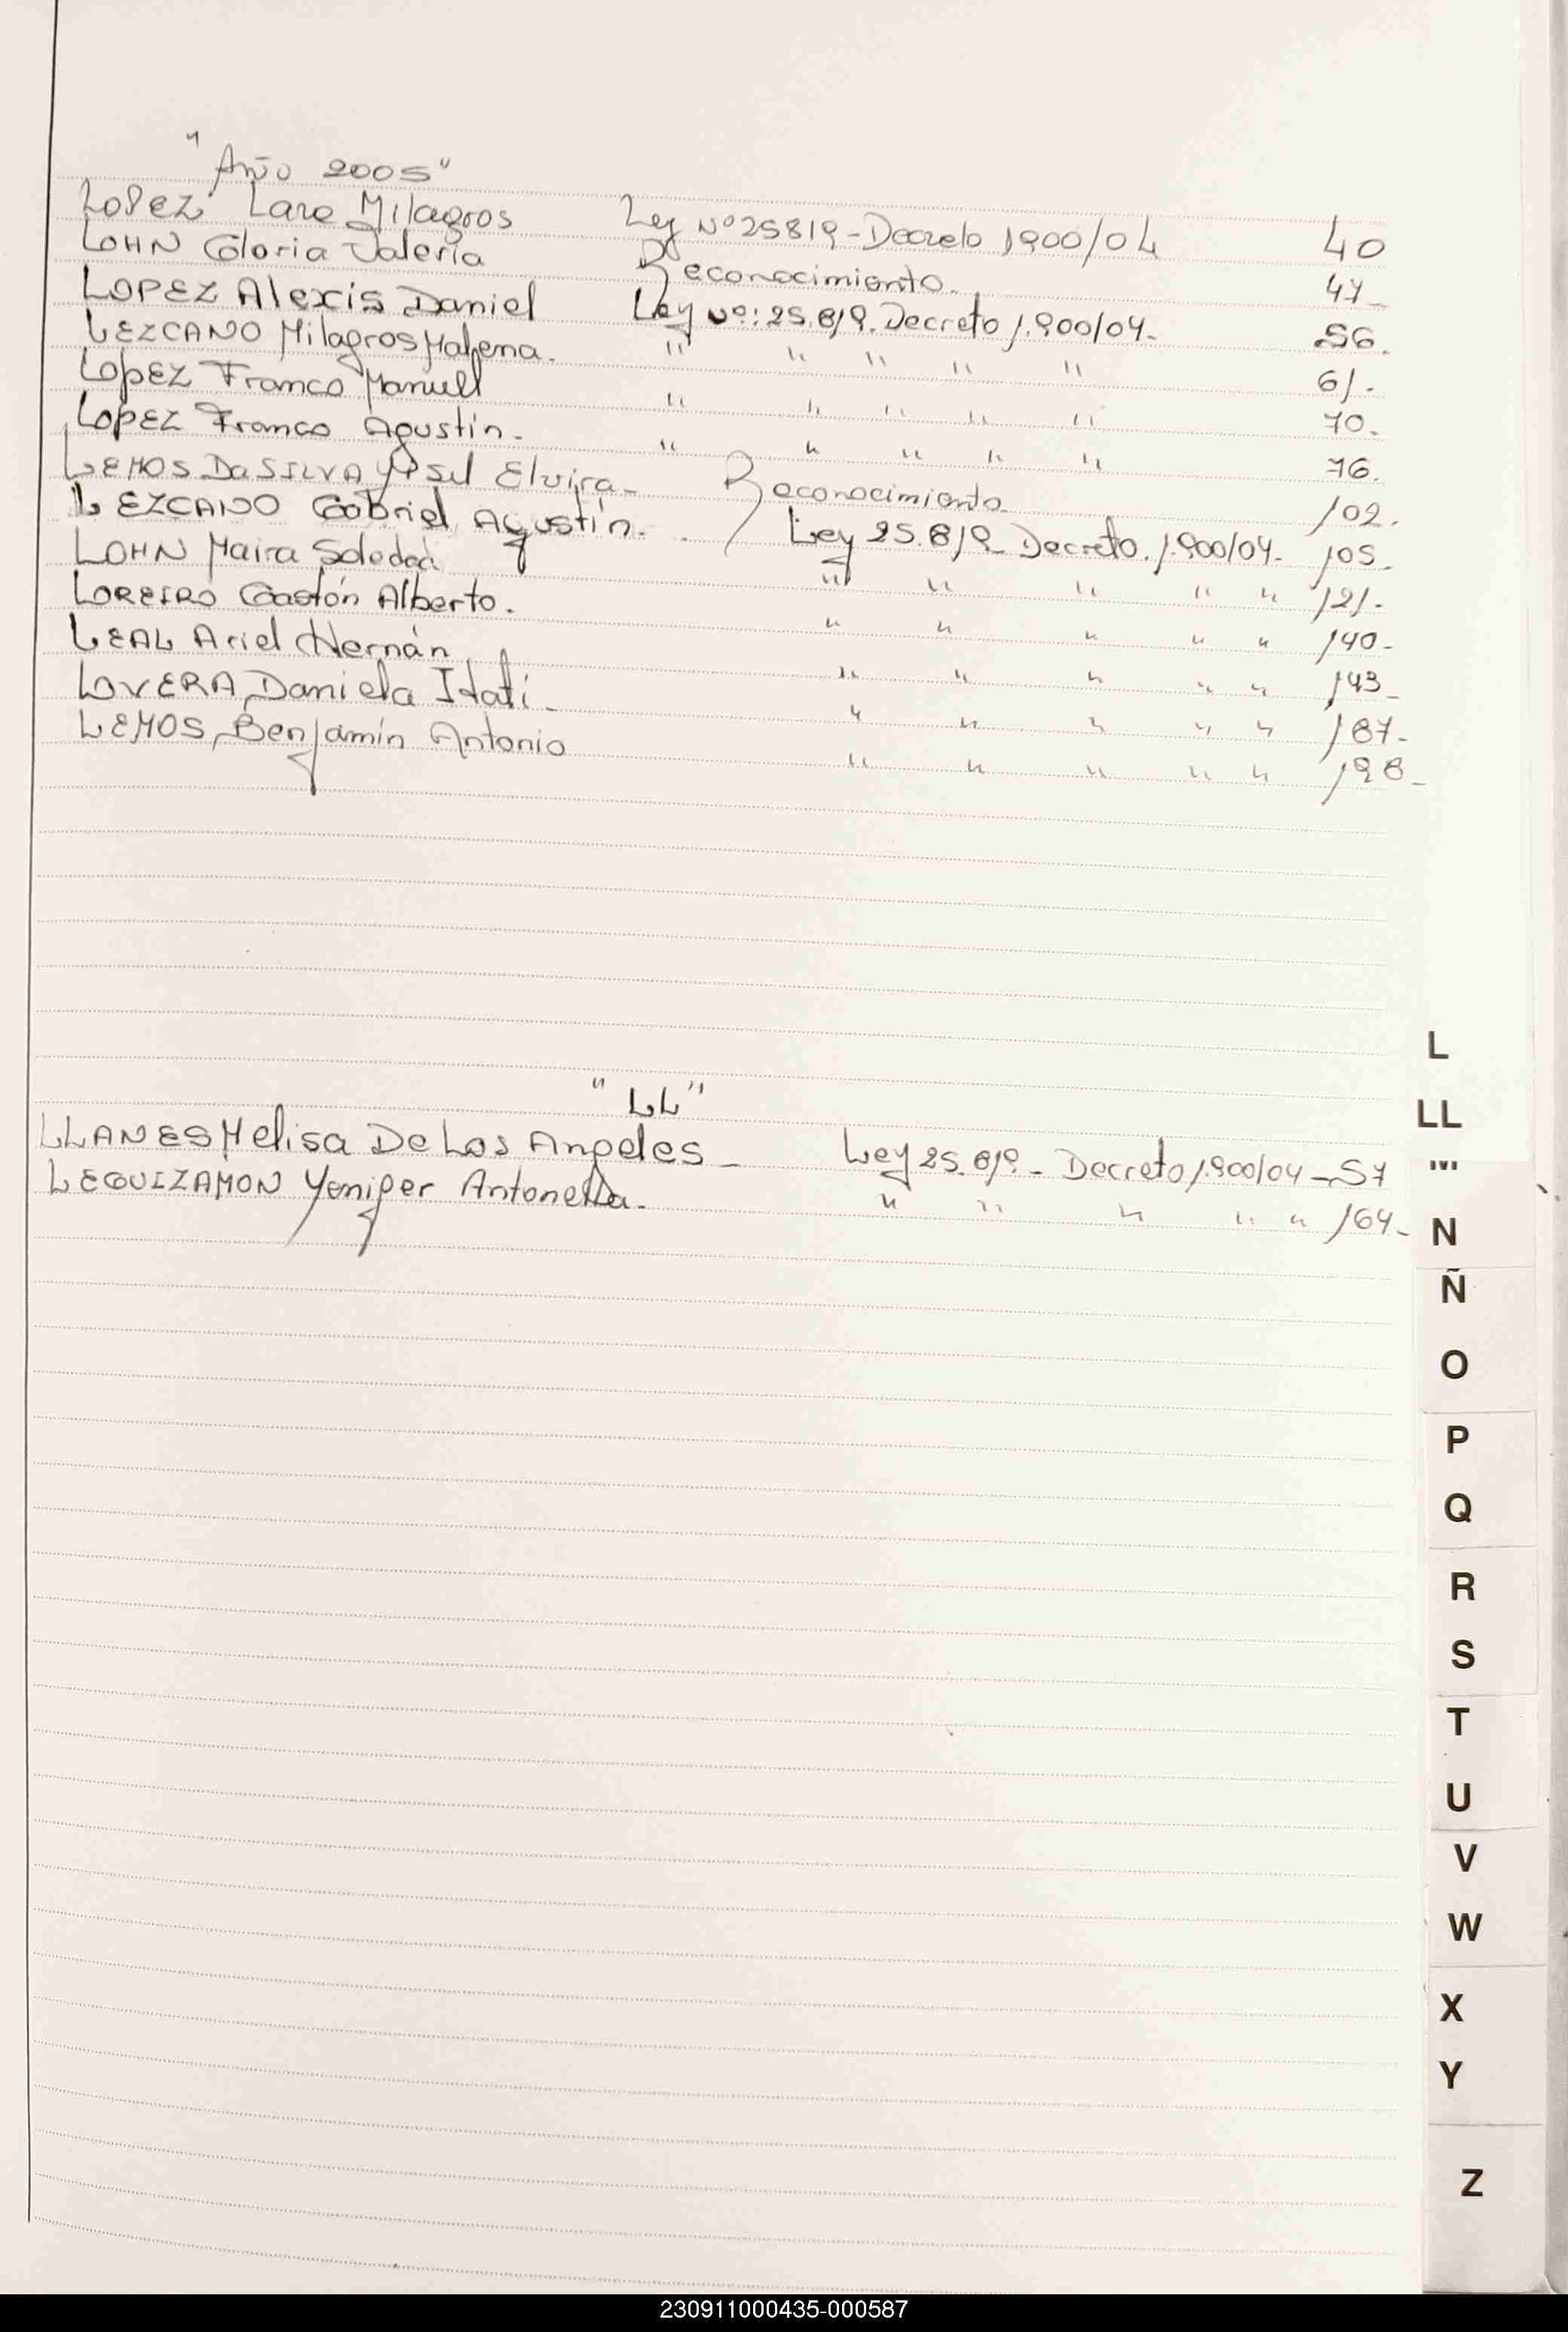 "Año 2005"
Lopez Lara Milagros Ley Nº 25819-Decreto 1900/04 40
LOHN Gloria Valeria Reconocimiento. 47-
LOPEZ Alexis Daniel Ley Nº: 25.819. Decreto 1.900/04- 56.
LEZCANO Milagros Malena. " " " " " 61.-
LopEZ Franco Manuel " " " " " 70.-
LopEZ Franco Agustín.- " " " " " 76.
LEMOS Da SILVA Elvira- Reconocimiento. 102.
LEZCANO Gabriel Agustín. Ley 25.819- Decreto. 1.900/04- 105-
LOHN Maira Soledad " " " " " 121.-
LOREIRO Gastón Alberto. " " " " " 140-
LEAL Ariel Hernán " " " " " 143-
LOVERA, Daniela Itatí.- " " " " " 187-
LEMOS, Benjamín Antonio " " " " " 198-
"LL"
LLANES Melisa De Los Angeles - Ley 25.819.- Decreto 1.900/04 - 57
LEGUIZAMON Yenifer Antonella.- " " " " " 164.-
L
LL
N
Ñ
O
P
Q
R
S
T
U
V
W
X
Y
Z
230911000435-000587